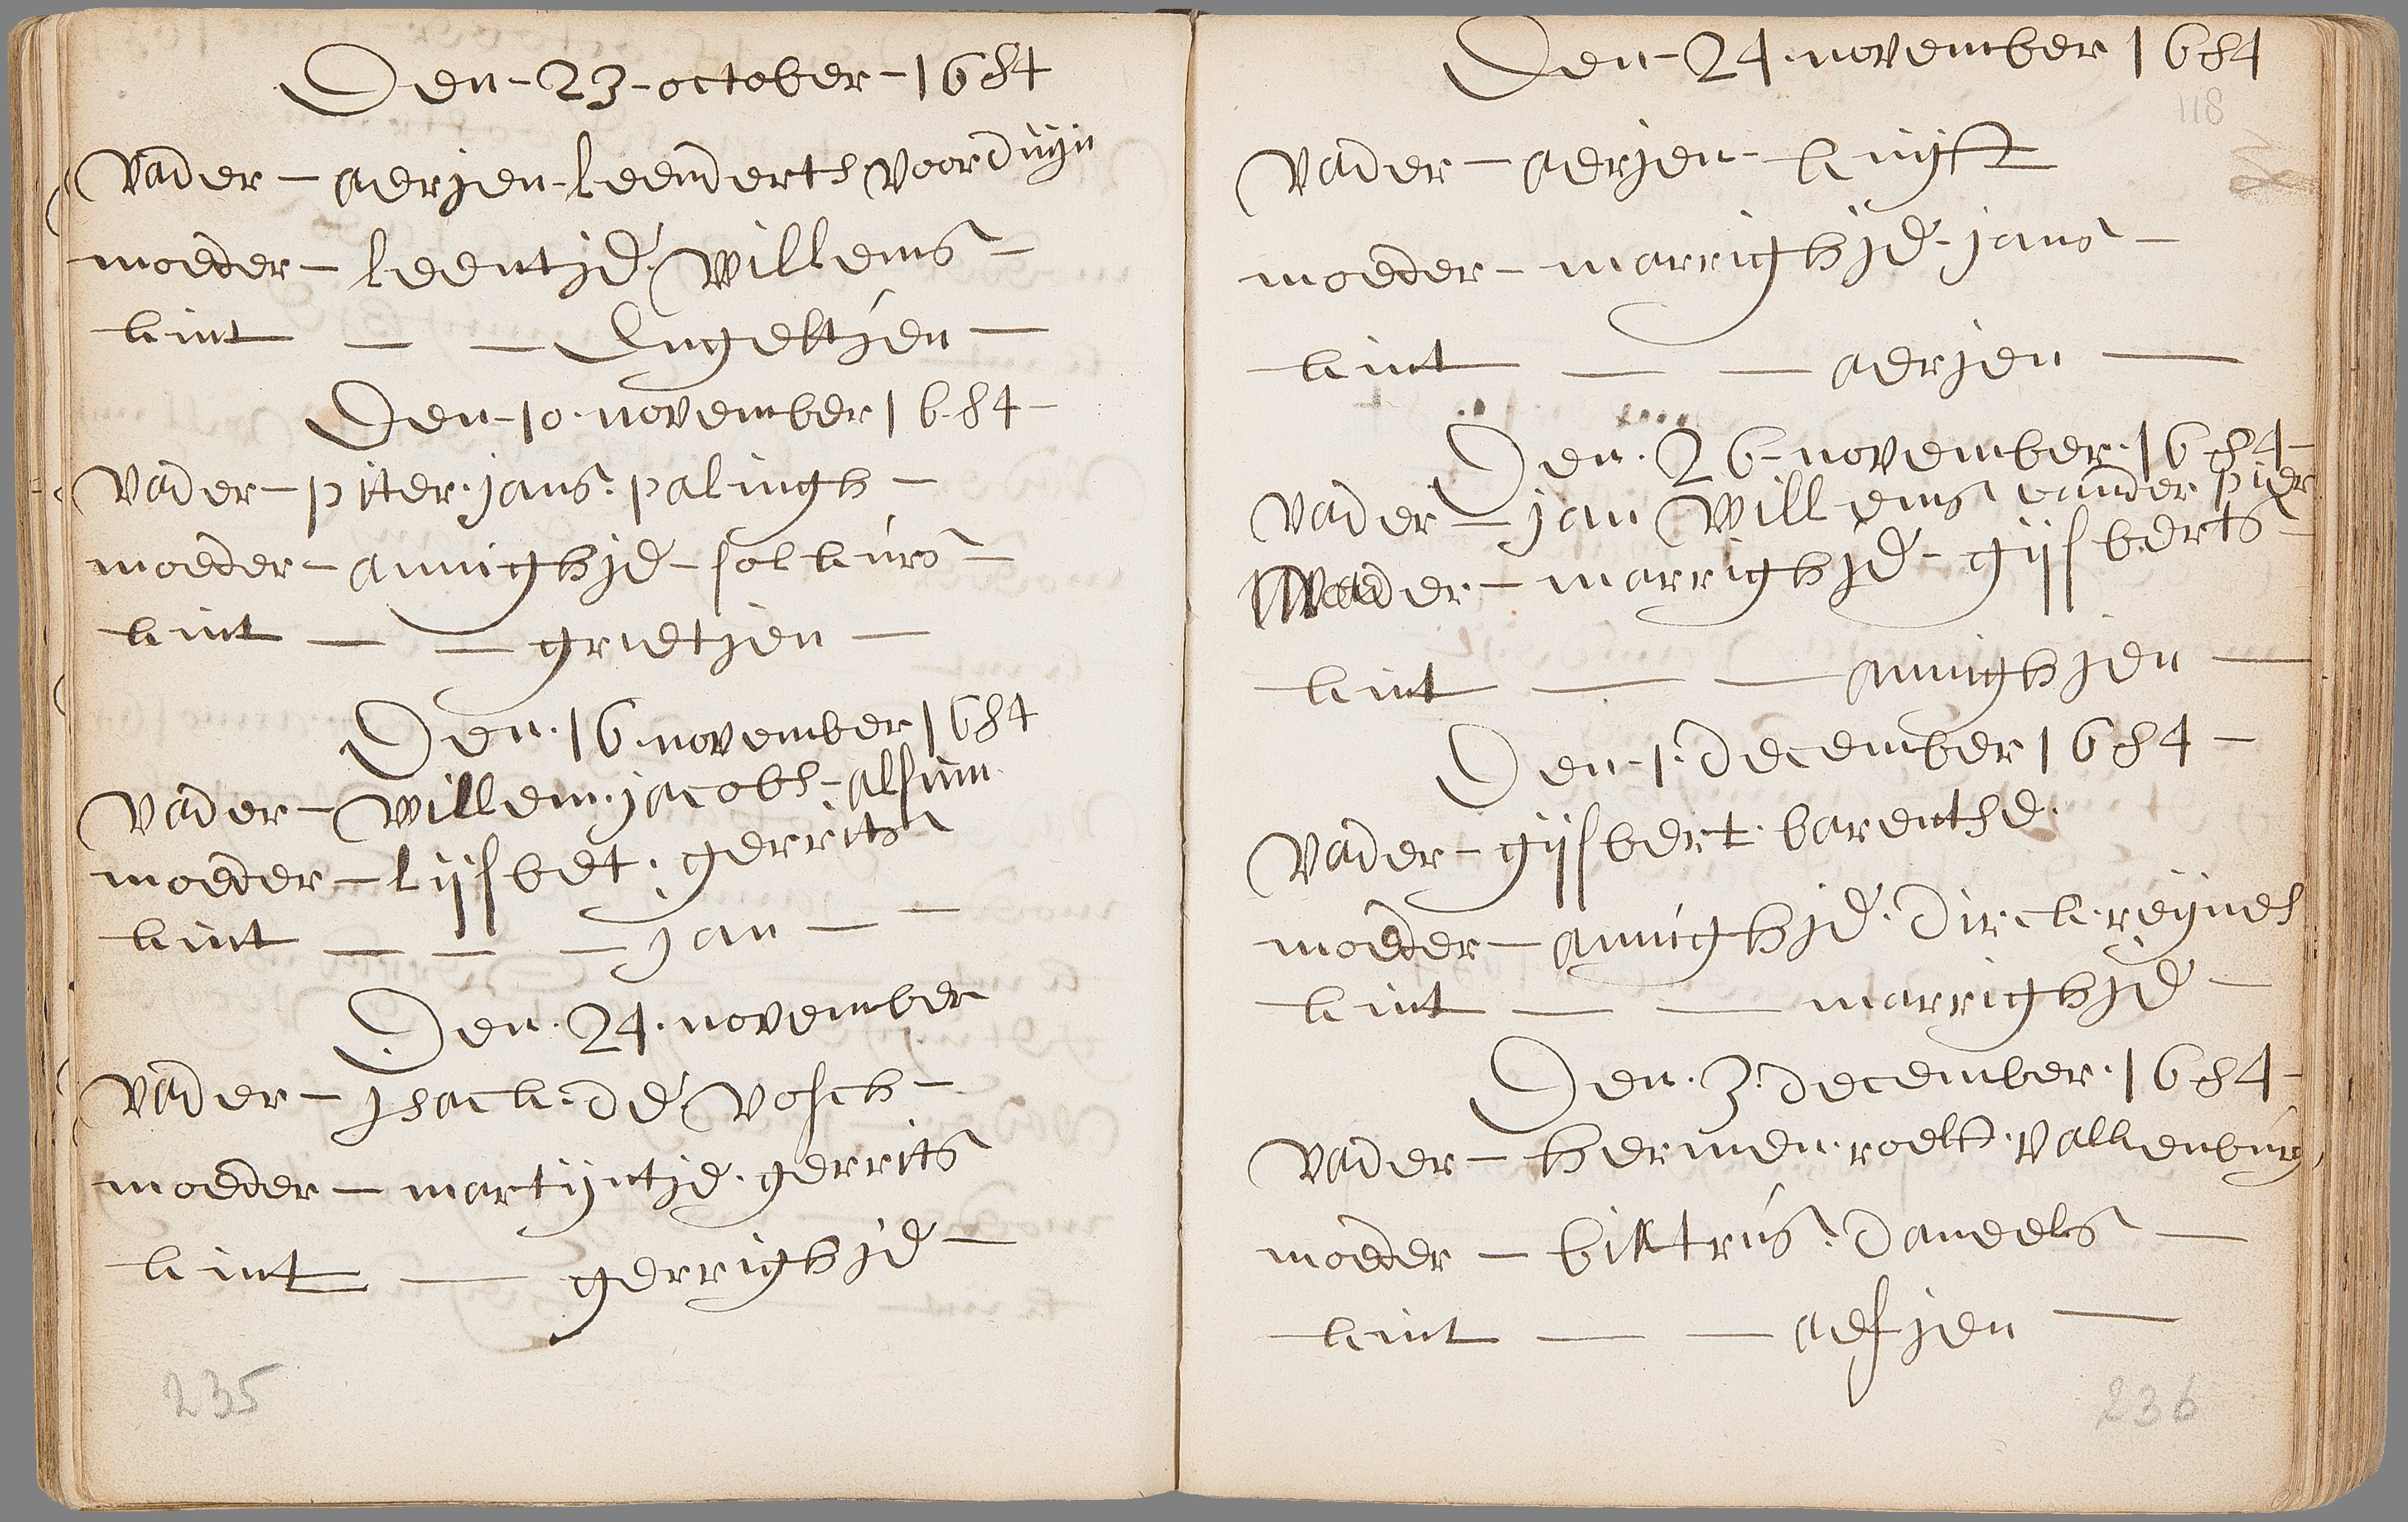 Den - 23 - october - 1684
vader - aerjen - leenderts voorduijn
moeder - leentje willems -
kint — — Engeltjen —
Den - 10 . november 1684 -
vader - piter . jans . palingh -
moeder - annighje - folkurs -
kint — — grietjen —
Den . 16 . november 1684
vader - willem . jacobs - alsum
moeder - lijsbet . gerrits
kint — — — jan — —
Den . 24 . november
vader - jsack . de vosch -
moeder - martijntje . gerrits
kint — gerrighje —
235
Den - 24 . november 1684
118
vader - aerjen - kuijff
moeder - marrighje - jans -
kint — — aerjen —
Den . 26 - november . 1684 -
vader - jan willems vander pijr
moeder - marrighje - gijsberts -
kint — — annighjen —
Den - 1 . december 1684 -
vader - gijsbert . barentse .
moeder - annighje . dirck . reijnes
kint — — marrighje -
Den . 3 . december . 1684 -
vader - hermen . roelts . valkenburg
moeder - biltrus . daneels —
kint — — aefjen —
236